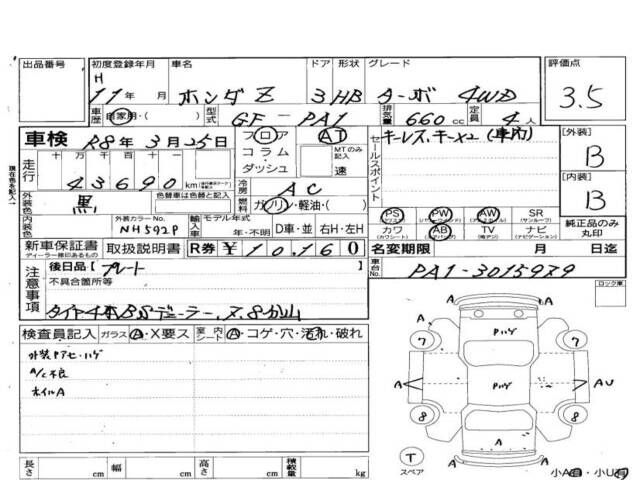 出品番号 初度登録年月 車名 ドア 形状 グレード 評価点
H 11年 月 ホンダ Z 3 HB ターボ 4WD 3.5
車歴 自家用・( ) 型式 GF-PA1 排気量 660cc 定員 4人
車検 R8年 3月25日 フロア コラム・ダッシュ AT MTのみ記入 速
セールスポイント キーレス、キー×2 (車内)
[外装] B
走行 十万 万 千 百 十 一
43690 km
冷房 AC
[内装] B
外装色 黒 色替車は色替色を記入
燃料 ガソリン・軽油・( )
PS PW AW SR
(パワステ) (パワーウィンド) (サンルーフ)
カワ AB TV ナビ
(カワシート) (エアバッグ) (ナビゲーション)
純正品のみ丸印
内装色 外装カラーNo. NH592P 輸入車 モデル年式 年・不明 D車・並 右H・左H
新車保証書 取扱説明書 R券 ¥10,160 名変期限 月 日迄
ディーラー捺印あるもの
車台No. PA1-3015979
現在色を記入
注意事項 後日品 プレート
不具合箇所等
タイヤ4本BSデューラー、7、8分山
ロック車
検査員記入 ガラス A・X要ス 室内シート A・コゲ・穴・汚れ・破れ
外装 Pアセ・ハゲ
A/C不良
ホイルA
A A
Pハゲ
7 7
A Pハゲ A U
8 8
A
A A
T
スペア
長さ cm 幅 cm 高さ cm 積載量 kg
小A有・小U有